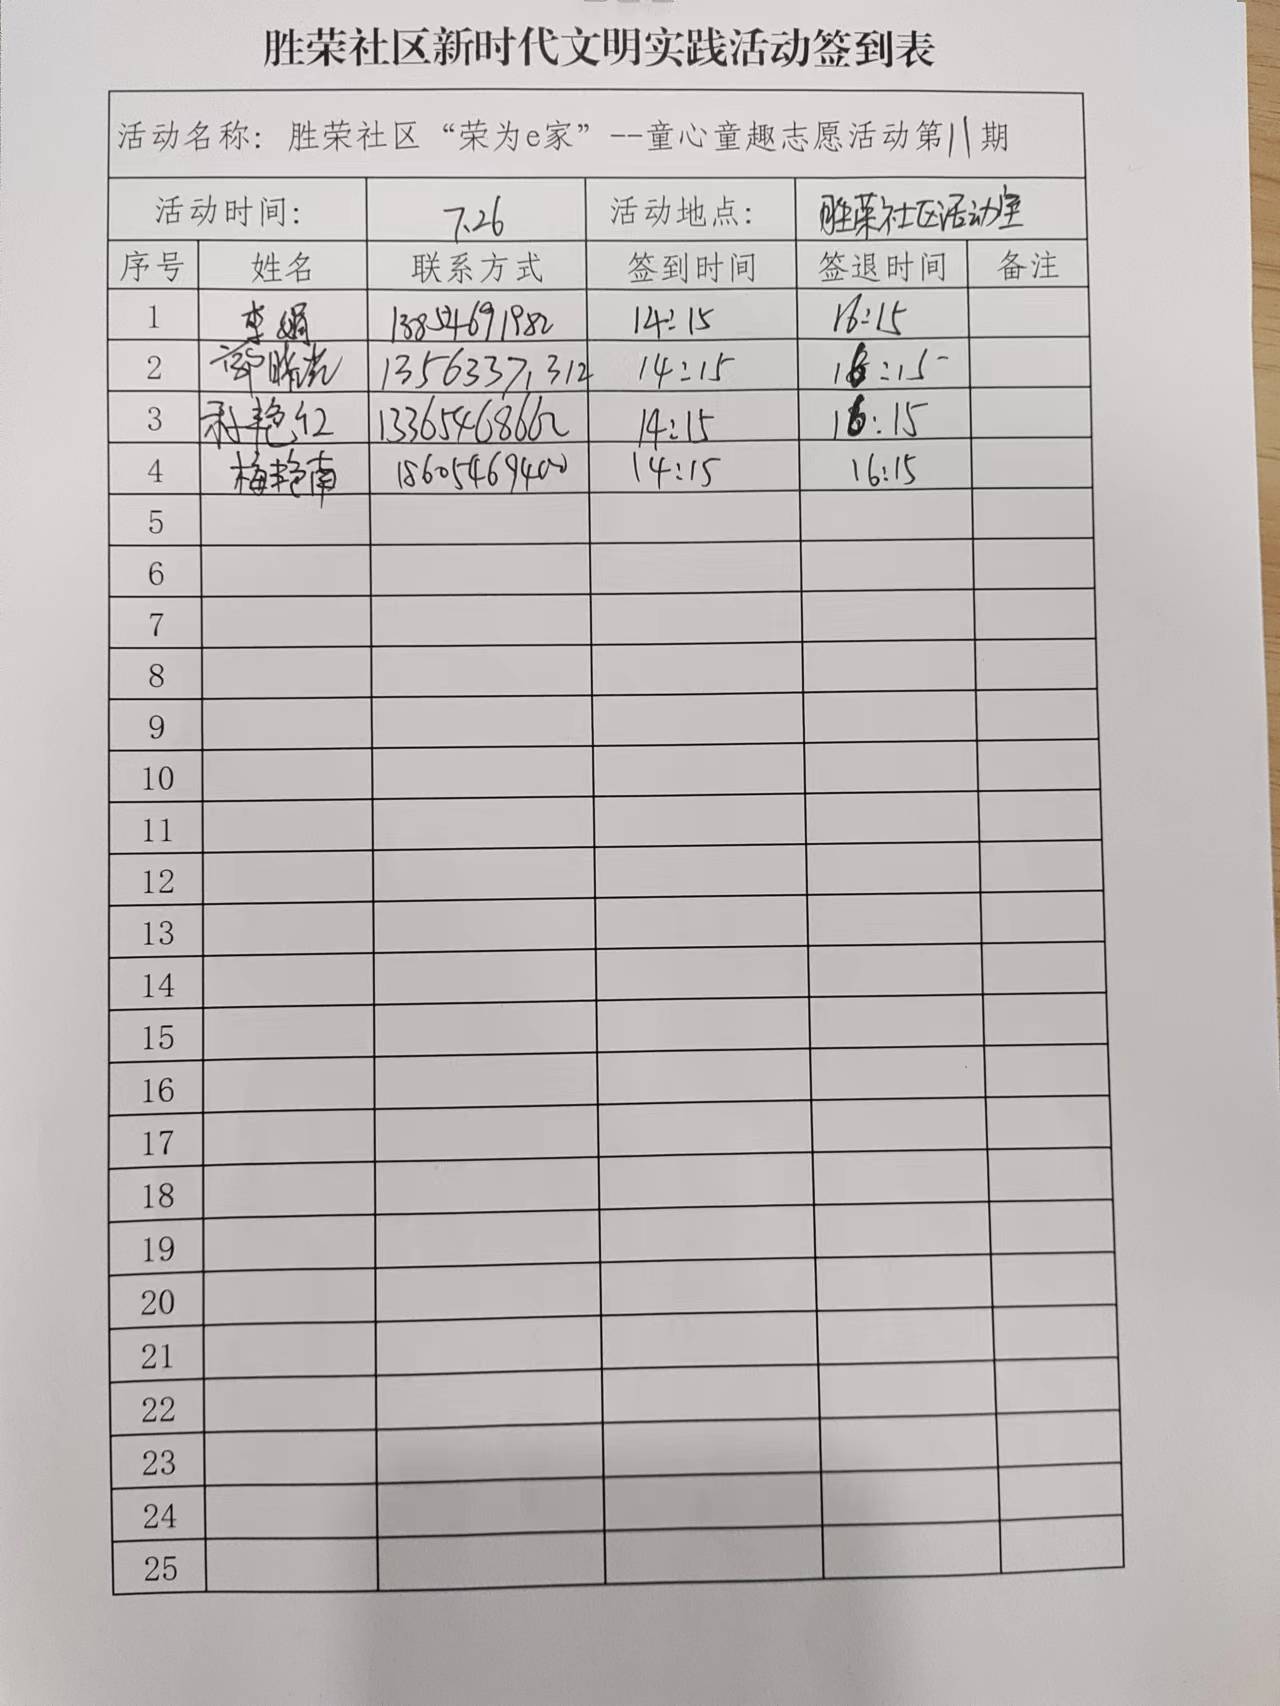 胜荣社区新时代文明实践活动签到表
活动名称：胜荣社区“荣为e家”--童心童趣志愿活动第11期
活动时间： 7.26 活动地点： 胜荣社区活动室
序号 姓名 联系方式 签到时间 签退时间 备注
1 李娟 13854691982 14:15 16:15
2 13563371312 14:15 16:15
3 艳红 13365468662 14:15 16:15
4 梅艳南 18605469400 14:15 16:15
5
6
7
8
9
10
11
12
13
14
15
16
17
18
19
20
21
22
23
24
25